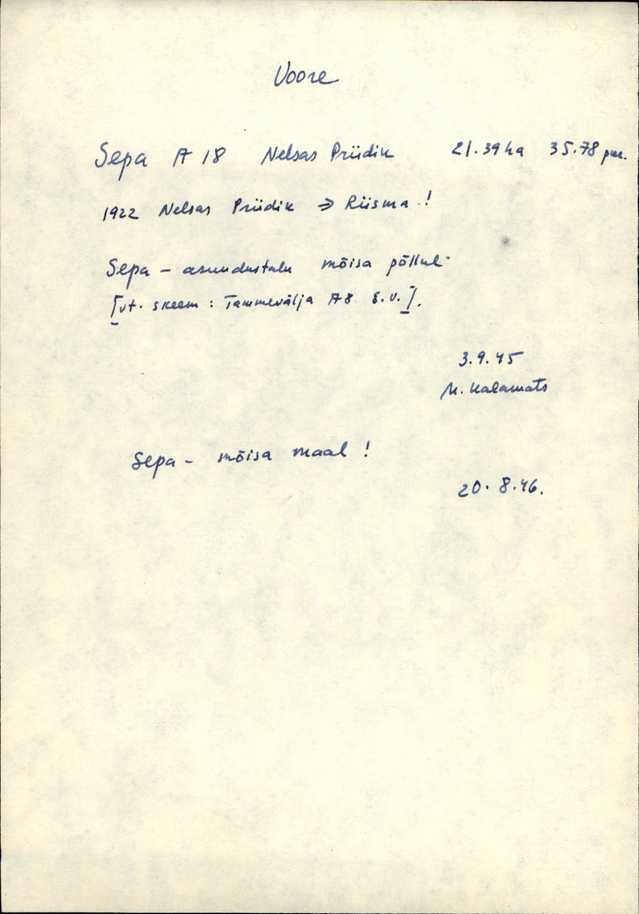 Voore
Sepa A 18 Nelsas Priidik 21.39 ha 35.78 pun.
1922 Nelsas Priidik => Riisma!
Sepa - asundustalu mõisa põllul
[vt. skeem: Tammevälja A8 s.v.].
3.9.45
M. Kalamats
Sepa - mõisa maal!
20.8.46.